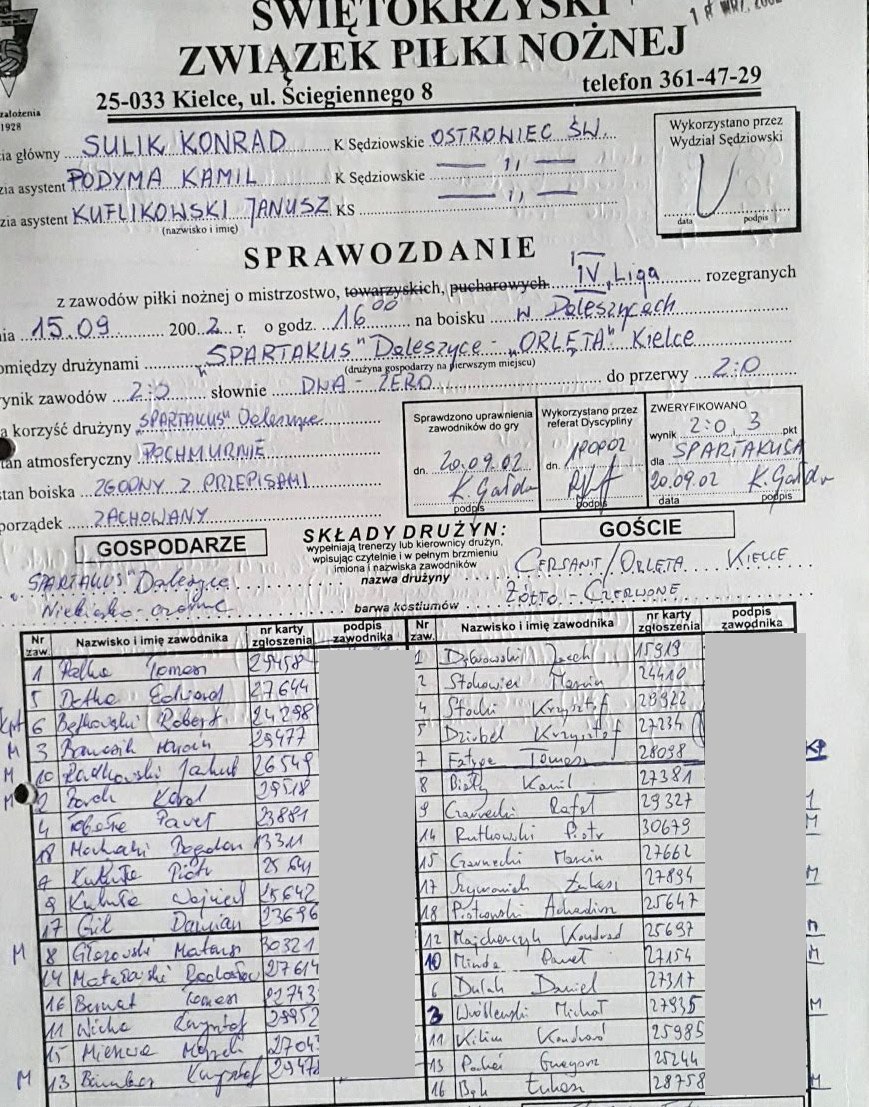 ŚWIĘTOKRZYSKI
ZWIĄZEK PIŁKI NOŻNEJ
25-033 Kielce, ul. Ściegiennego 8 telefon 361-47-29
założenia
1928
Wykorzystano przez
Wydział Sędziowski
data podpis
główny SULIK KONRAD K Sędziowskie OSTROWIEC ŚW.
asystent PODYMA KAMIL K Sędziowskie — ,, —
asystent KUFLIKOWSKI JANUSZ KS — ,, —
(nazwisko i imię)
SPRAWOZDANIE
z zawodów piłki nożnej o mistrzostwo, towarzyskich, pucharowych IV Liga rozegranych
15.09 2002 r. o godz. 16 00 na boisku w Daleszycach
pomiędzy drużynami "SPARTAKUS" Daleszyce - "ORLĘTA" Kielce
(drużyna gospodarzy na pierwszym miejscu)
wynik zawodów 2:0 słownie DWA - ZERO do przerwy 2:0
korzyść drużyny "SPARTAKUS" Daleszyce
stan atmosferyczny POCHMURNIE
stan boiska ZGODNY Z PRZEPISAMI
porządek ZACHOWANY
Sprawdzono uprawnienia
zawodników do gry
dn. 20.09.02
podpis
Wykorzystano przez
referat Dyscypliny
dn.
podpis
ZWERYFIKOWANO
wynik 2:0, 3 pkt
dla SPARTAKUSA
20.09.02
data podpis
GOSPODARZE
SKŁADY DRUŻYN:
wypełniają trenerzy lub kierownicy drużyn,
wpisując czytelnie i w pełnym brzmieniu
imiona i nazwiska zawodników
GOŚCIE
"SPARTAKUS" Daleszyce nazwa drużyny CERSANIT/ORLĘTA KIELCE
Niebiesko-czarne barwa kostiumów ŻÓŁTO - CZERWONE
Nr zaw. Nazwisko i imię zawodnika nr karty zgłoszenia podpis zawodnika
1 Tomasz 25458
5 27644
Kpt 6 Bętkowski Robert 24298
M 3 29477
M 10 Radkowski Jakub 26549
M 2 Karol 29518
4 Paweł 23881
18 Bogdan 13311
7 Kukuła Piotr 25641
9 Kukuła Wojciech 25642
17 Gil Damian 23696
M 8 Głozowski Mateusz 30321
14 Radosław 27614
16 Bernat Tomasz
11 Wicha Krzysztof 29952
15
M 13 Krzysztof
Nr zaw. Nazwisko i imię zawodnika nr karty zgłoszenia podpis zawodnika
1 Dąbrowski Jacek 15919
2 Stokowiec Marcin 24410
4 Krzysztof 28922
5 Dziubel Krzysztof 27234
7 Fatyga Tomasz 28098 KP
8 Biały Kamil 27381
9 Czarnecki Rafał 29327
14 Rutkowski Piotr 30679 M
15 Czarnecki Marcin 27662
17 Szymoniak Łukasz 27894 M
18 Piotrowski Arkadiusz 25647
12 Majcherczyk Konrad 25697 M
10 Minda Paweł 27154 M
6 Dulak Daniel 27317
3 Wróblewski Michał 27935 M
11 Kilian Konrad 25985
13 Grzegorz 25244
16 Bąk Łukasz 28758 M